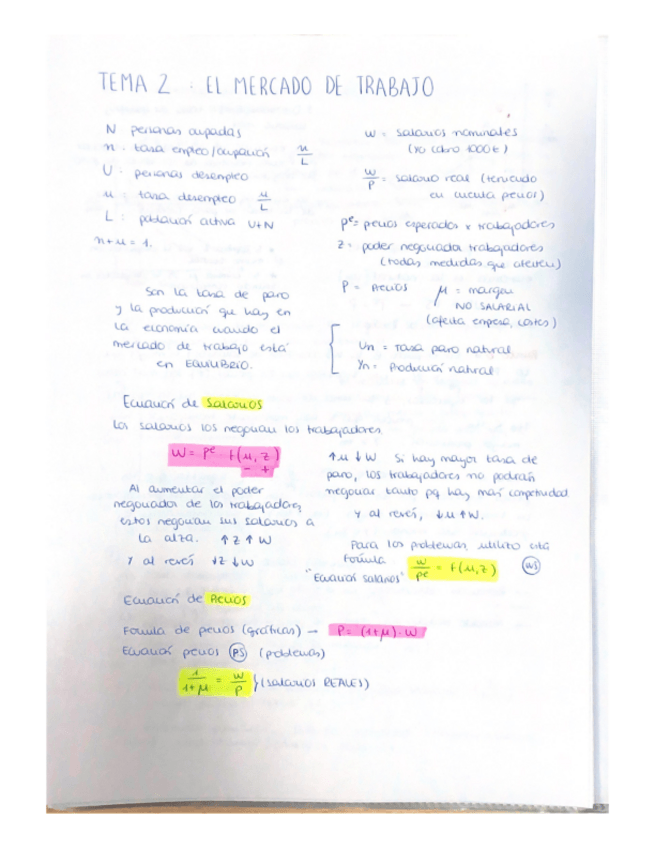 TEMA 2 : EL MERCADO DE TRABAJO
N personas ocupadas
n = tasa empleo/ocupación n/L
U = personas desempleo
u = tasa desempleo u/L
L = población activa U+N
n+u = 1.
w = salarios nominales
(yo cobro 1000€)
w/P = salario real (teniendo
en cuenta precios)
Pe = precios esperados x trabajadores
Z = poder negociador trabajadores
(todas medidas que afecten)
P = precios
μ = margen
NO SALARIAL
(afecta empresa, costes)
Son la tasa de paro
y la producción que hay en
la economía cuando el
mercado de trabajo está
en EQUILIBRIO.
Un = tasa paro natural
Yn = Producción natural
Ecuación de SALARIOS
Los salarios los negocian los trabajadores
W = Pe · f(u, z)
- +
Al aumentar el poder
negociador de los trabajadores,
estos negocian sus salarios a
la alza. ↑Z ↑W
Y al revés ↓Z ↓W
↑u ↓W Si hay mayor tasa de
paro, los trabajadores no podrán
negociar tanto pq hay más competividad.
Y al revés, ↓u ↑W.
Para los problemas, utilizo esta
fórmula
"Ecuación salarios" w/pe = f(u,z) (WS)
Ecuación de PRECIOS
Fórmula de precios (gráficas) → P = (1+μ) · W
Ecuación precios (PS) (problemas)
1/1+μ = w/P } (salarios REALES)